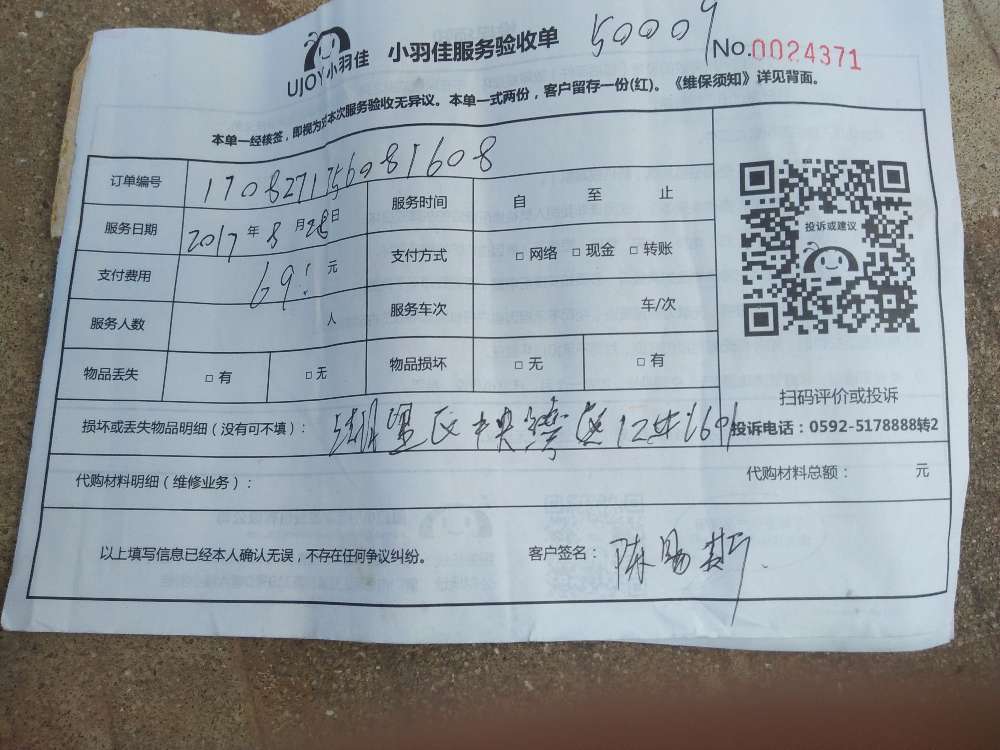 UJOY小羽佳 小羽佳服务验收单 50009 No.0024371
本单一经核签，即视为对本次服务验收无异议。本单一式两份，客户留存一份(红)。《维保须知》详见背面。
订单编号 1708271756081608
服务日期 2017年8月28日 服务时间 自 至 止
支付费用 69元 支付方式 □网络 □现金 □转账
服务人数 人 服务车次 车/次
物品丢失 □有 □无 物品损坏 □无 □有
投诉或建议
扫码评价或投诉
投诉电话：0592-5178888转2
损坏或丢失物品明细（没有可不填）： 区 央 区12
代购材料明细（维修业务）： 代购材料总额： 元
以上填写信息已经本人确认无误，不存在任何争议纠纷。 客户签名：陈